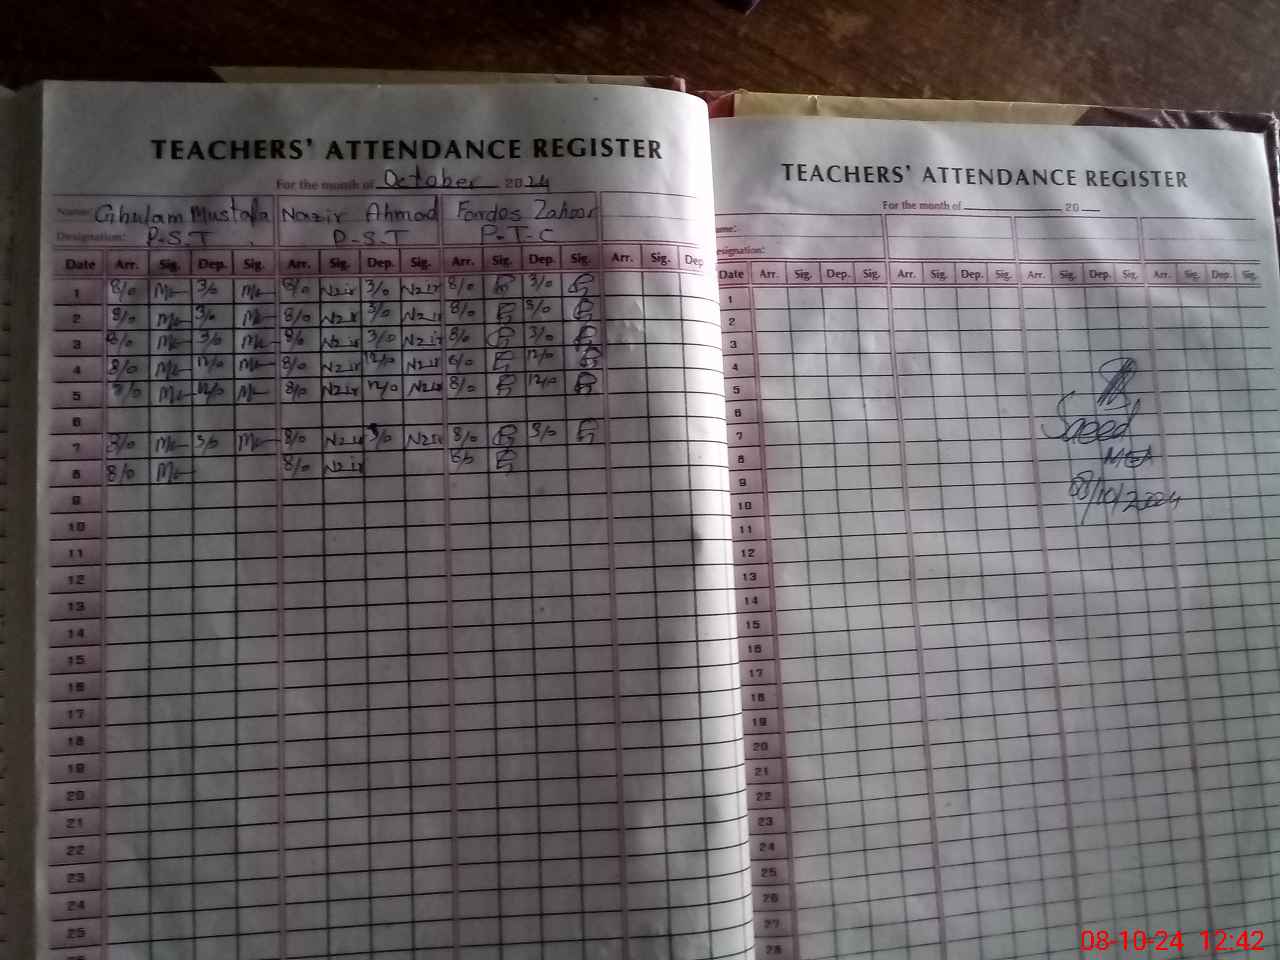 TEACHERS' ATTENDANCE REGISTER
For the month of October 2024
Name: Ghulam Mustafa Nazir Ahmad Fardos Zahoor
Designation: P.S.T P.S.T P.T.C
Date Arr. Sig. Dep. Sig. Arr. Sig. Dep. Sig. Arr. Sig. Dep. Sig. Arr. Sig. Dep
1 8/0 3/0 8/0 Nzir 3/0 Nzir 8/0 3/0
2 8/0 3/0 8/0 Nzir 3/0 Nzir 8/0 3/0
3 8/0 3/0 8/0 Nzir 3/0 Nzir 8/0 3/0
4 8/0 12/0 8/0 Nzir 12/0 Nzir 8/0 12/0
5 8/0 12/0 8/0 Nzir 12/0 Nzir 8/0 12/0
6
7 8/0 3/0 8/0 Nzir 3/0 Nzir 8/0 3/0
8 8/0 8/0 Nzir 8/0
9
10
11
12
13
14
15
16
17
18
19
20
21
22
23
24
25
TEACHERS' ATTENDANCE REGISTER
For the month of 20
ame:
esignation:
Date Arr. Sig. Dep. Sig. Arr. Sig. Dep. Sig. Arr. Sig. Dep. Sig. Arr. Sig. Dep. Sig.
1
2
3
4
5
6
7
8
9
10
11
12
13
14
15
16
17
18
19
20
21
22
23
24
25
26
27
28
Saeed
MEA
08/10/2024
08-10-24 12:42